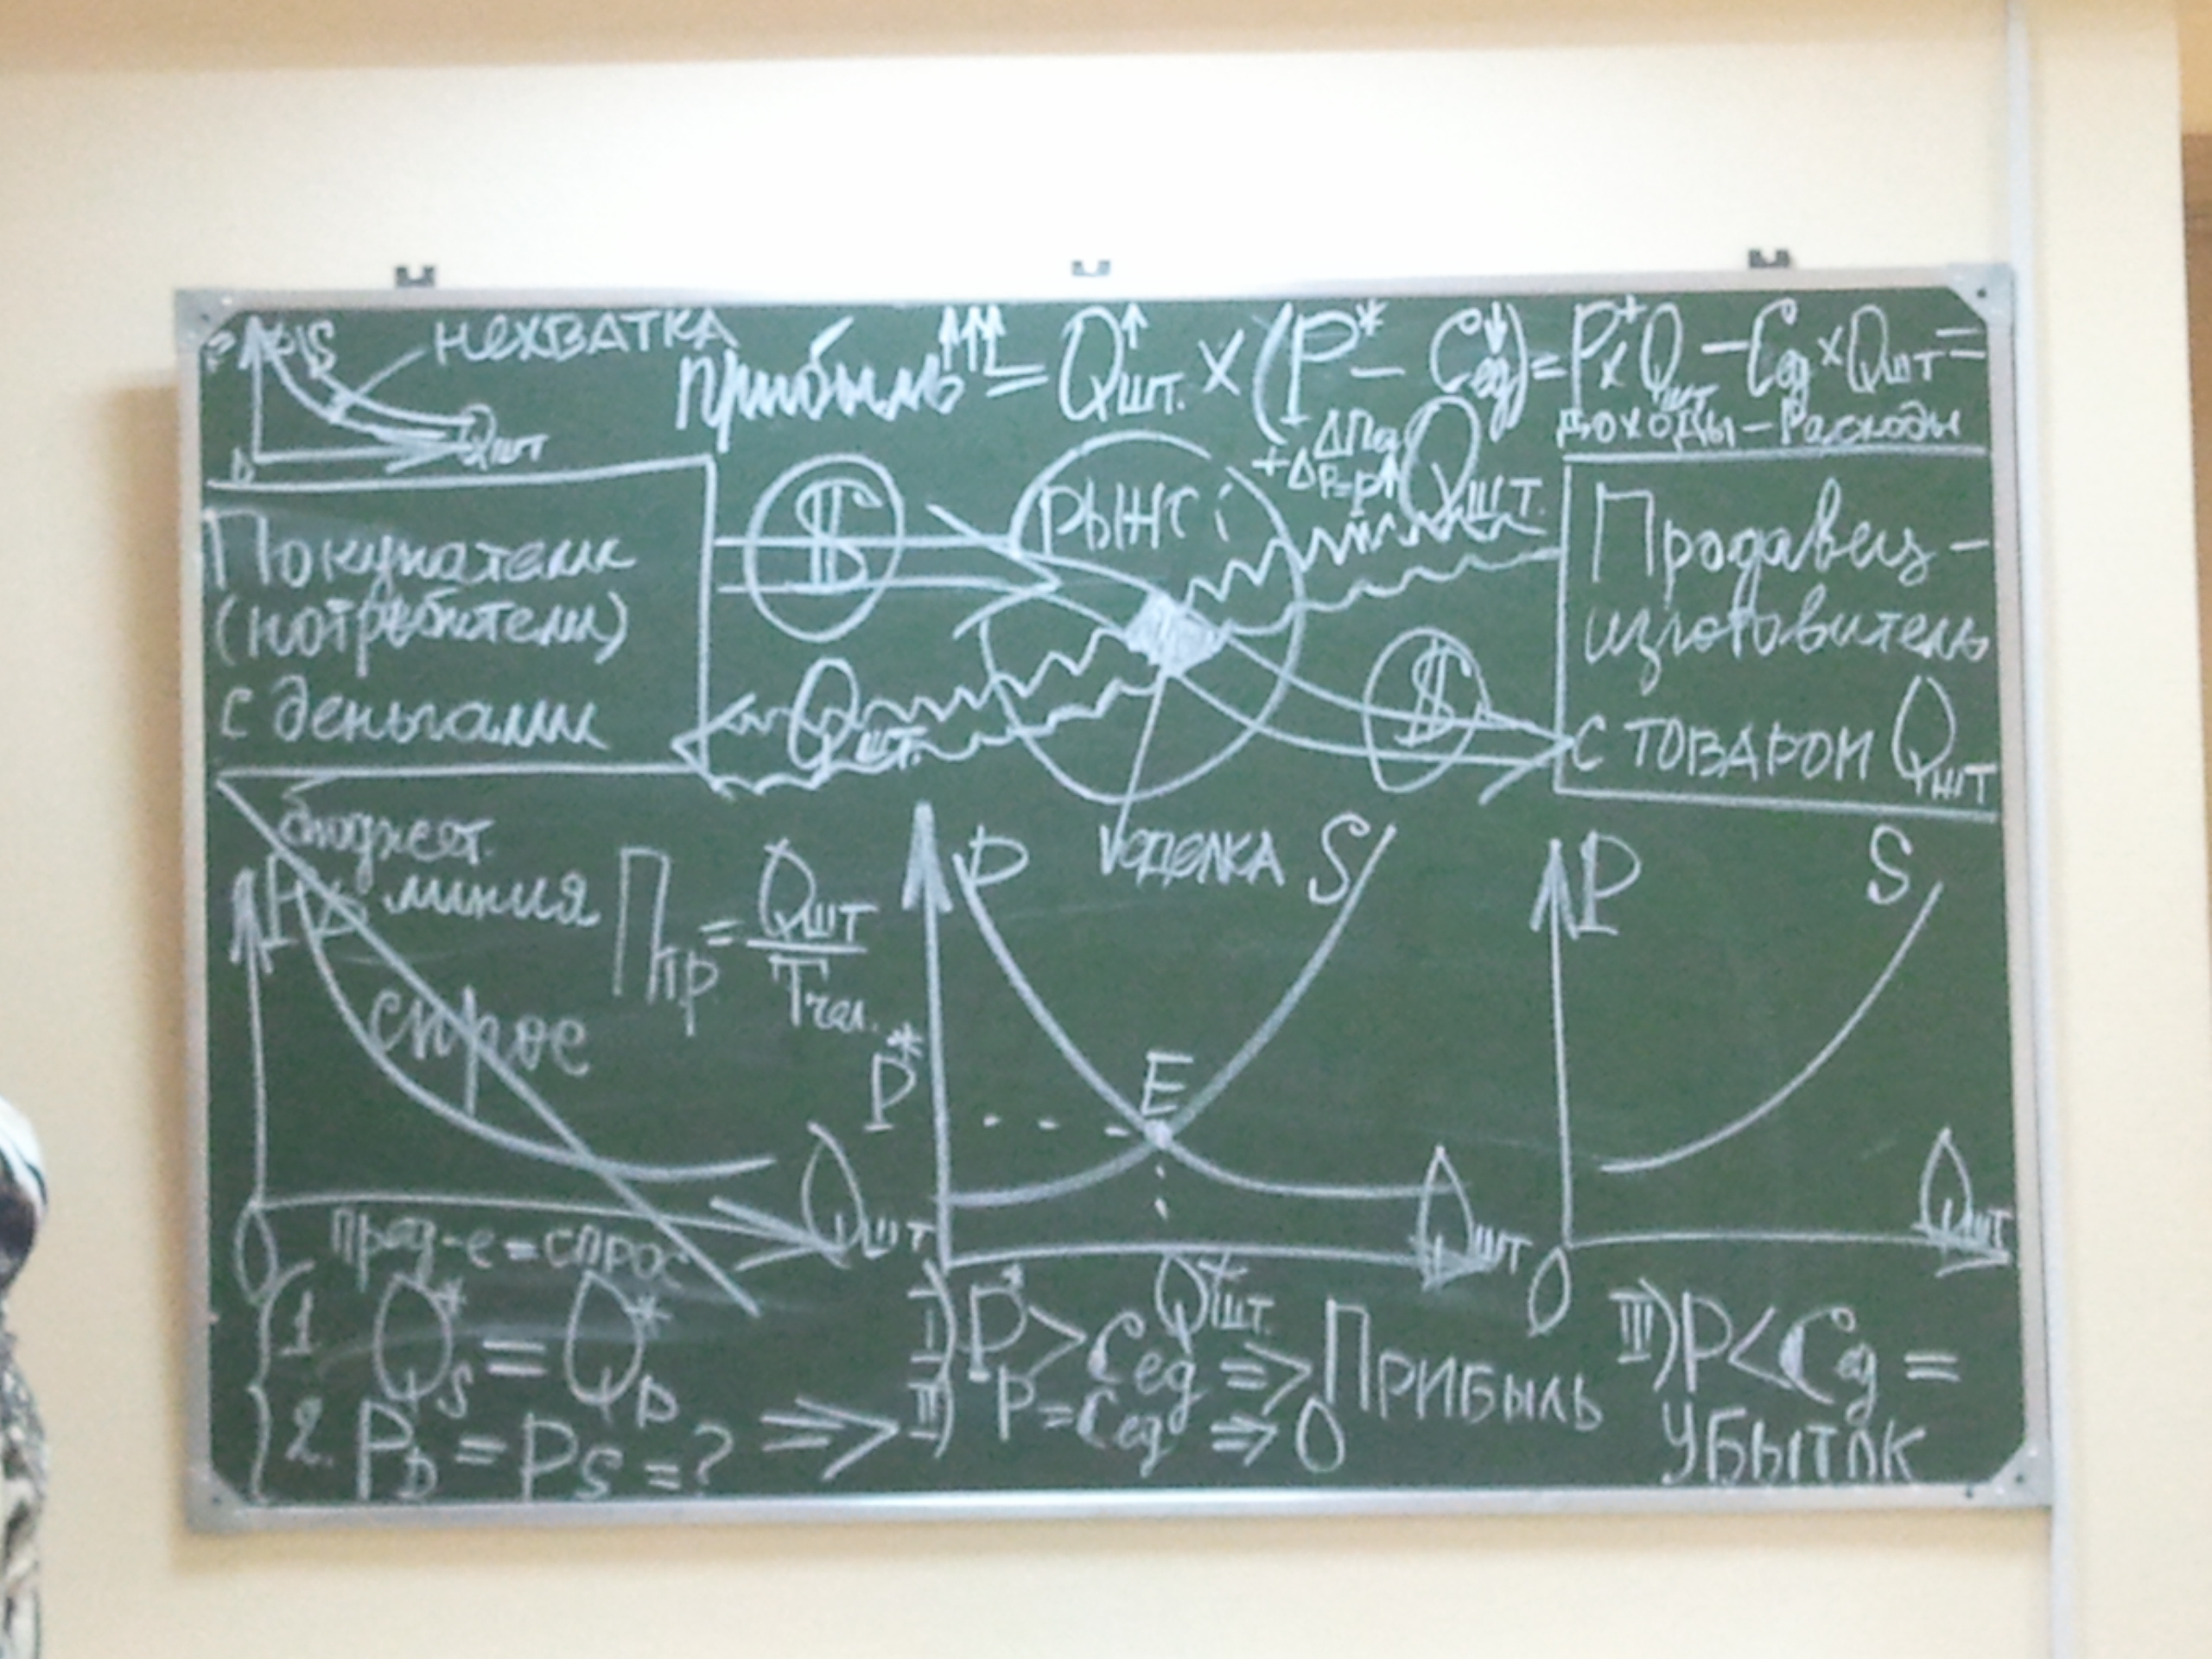 НЕХВАТКА
Qшт
прибыль↑↑↑ = Qшт.↑ × (P* − Cед↓) = P* × Qшт − Cед × Qшт =
доходы – Расходы
Покупатели
(потребители)
с деньгами
$
РЫНОК
Qшт.
Продавец-
изготовитель
с ТОВАРОМ Qшт
Qшт.
$
сделка
бюджет.
линия
P
спрос
Qшт
Ппр = Qшт / Tчел.
P
S
P*
E
Qшт
Q*шт.
P
S
Qшт
0
0
пред-е = спрос
1. Q*S = Q*D
2. PD = PS = ? ⇒
I) P* > Cед ⇒ ПРИБЫЛЬ
II) P = Cед ⇒ 0
III) P < Cед =
УБЫТОК